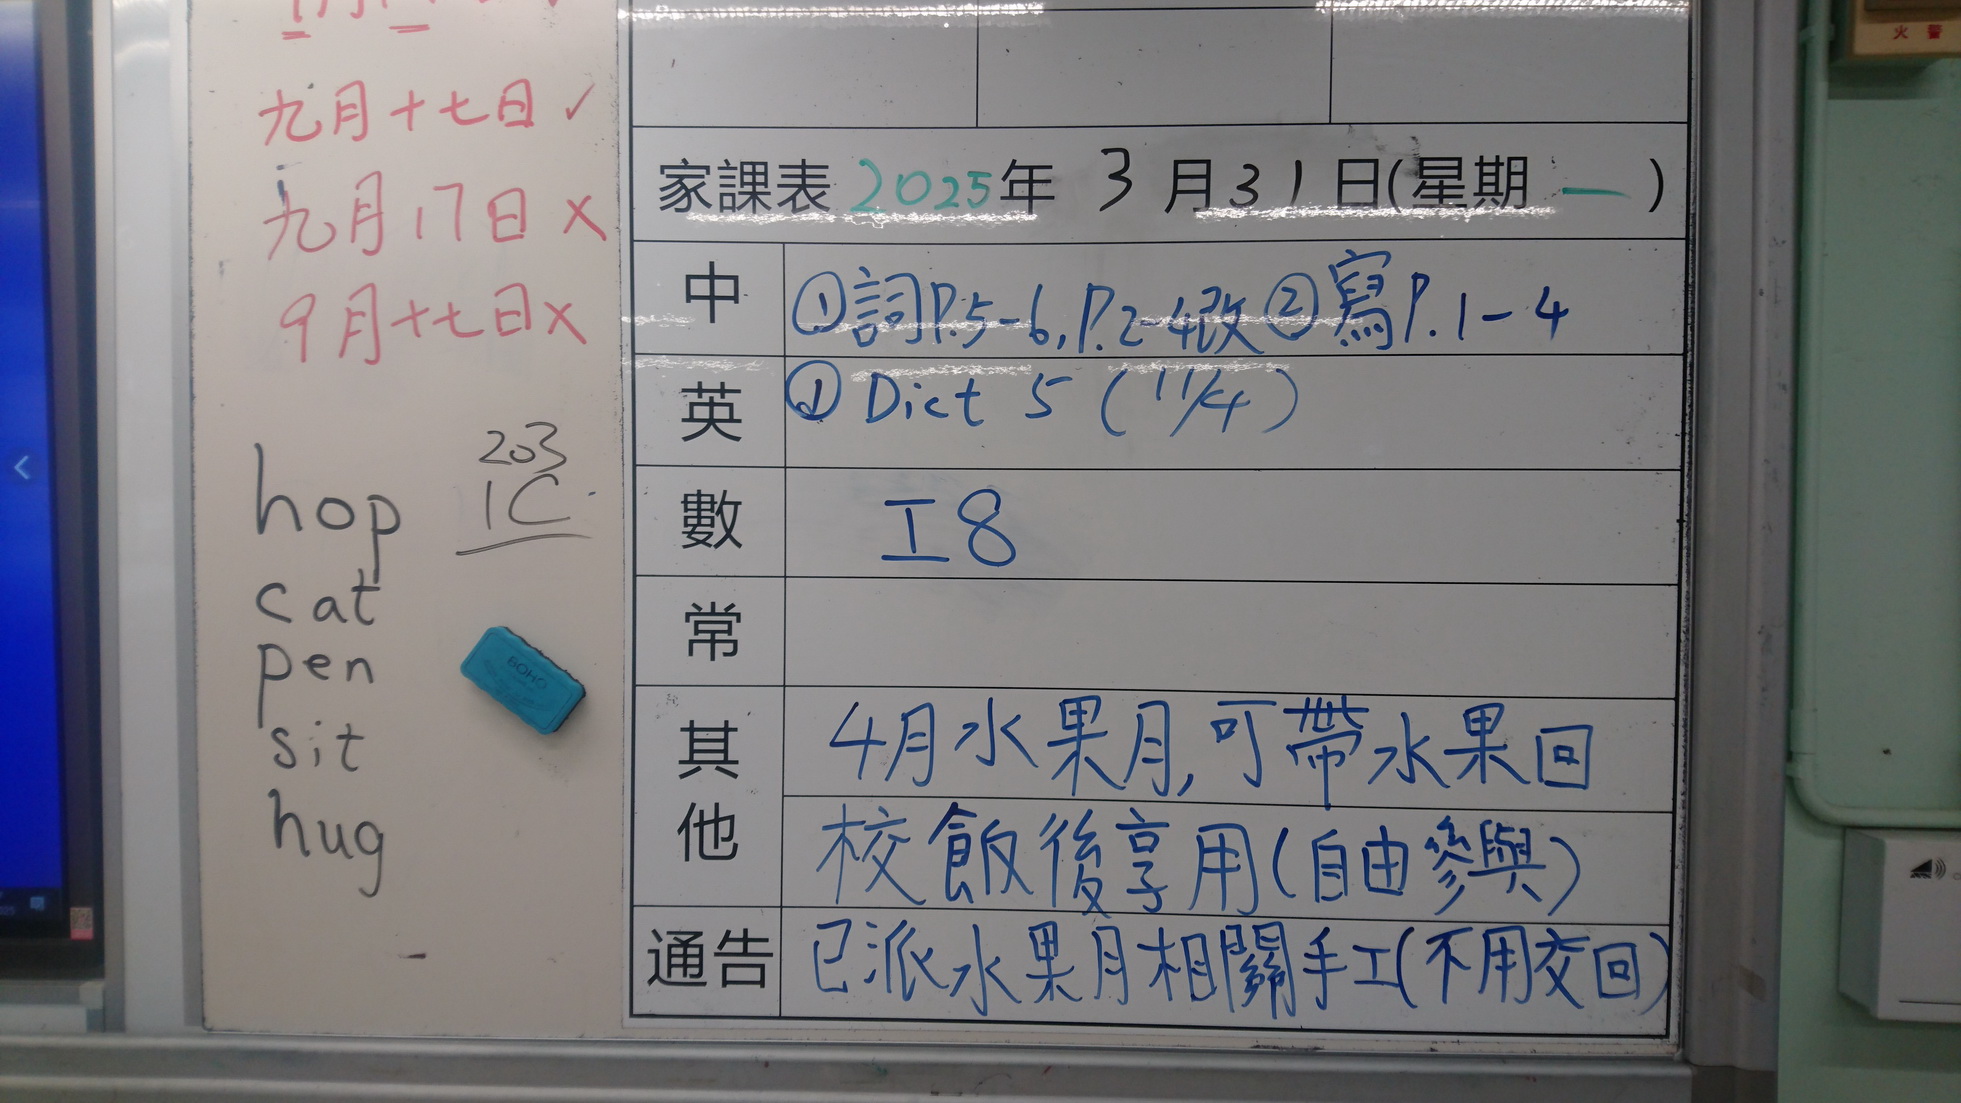 九月十七日 ✓
九月17日 X
9月十七日 X
203
1C
hop
cat
pen
sit
hug
BOHO
家課表 2025年 3月31日(星期一)
中 ①詞P.5-6,P.2-4改 ②寫P.1-4
英 ① Dict 5 (11/4)
數 工8
常
其他 4月水果月,可帶水果回
校飯後享用(自由參與)
通告 已派水果月相關手工(不用交回)
火警